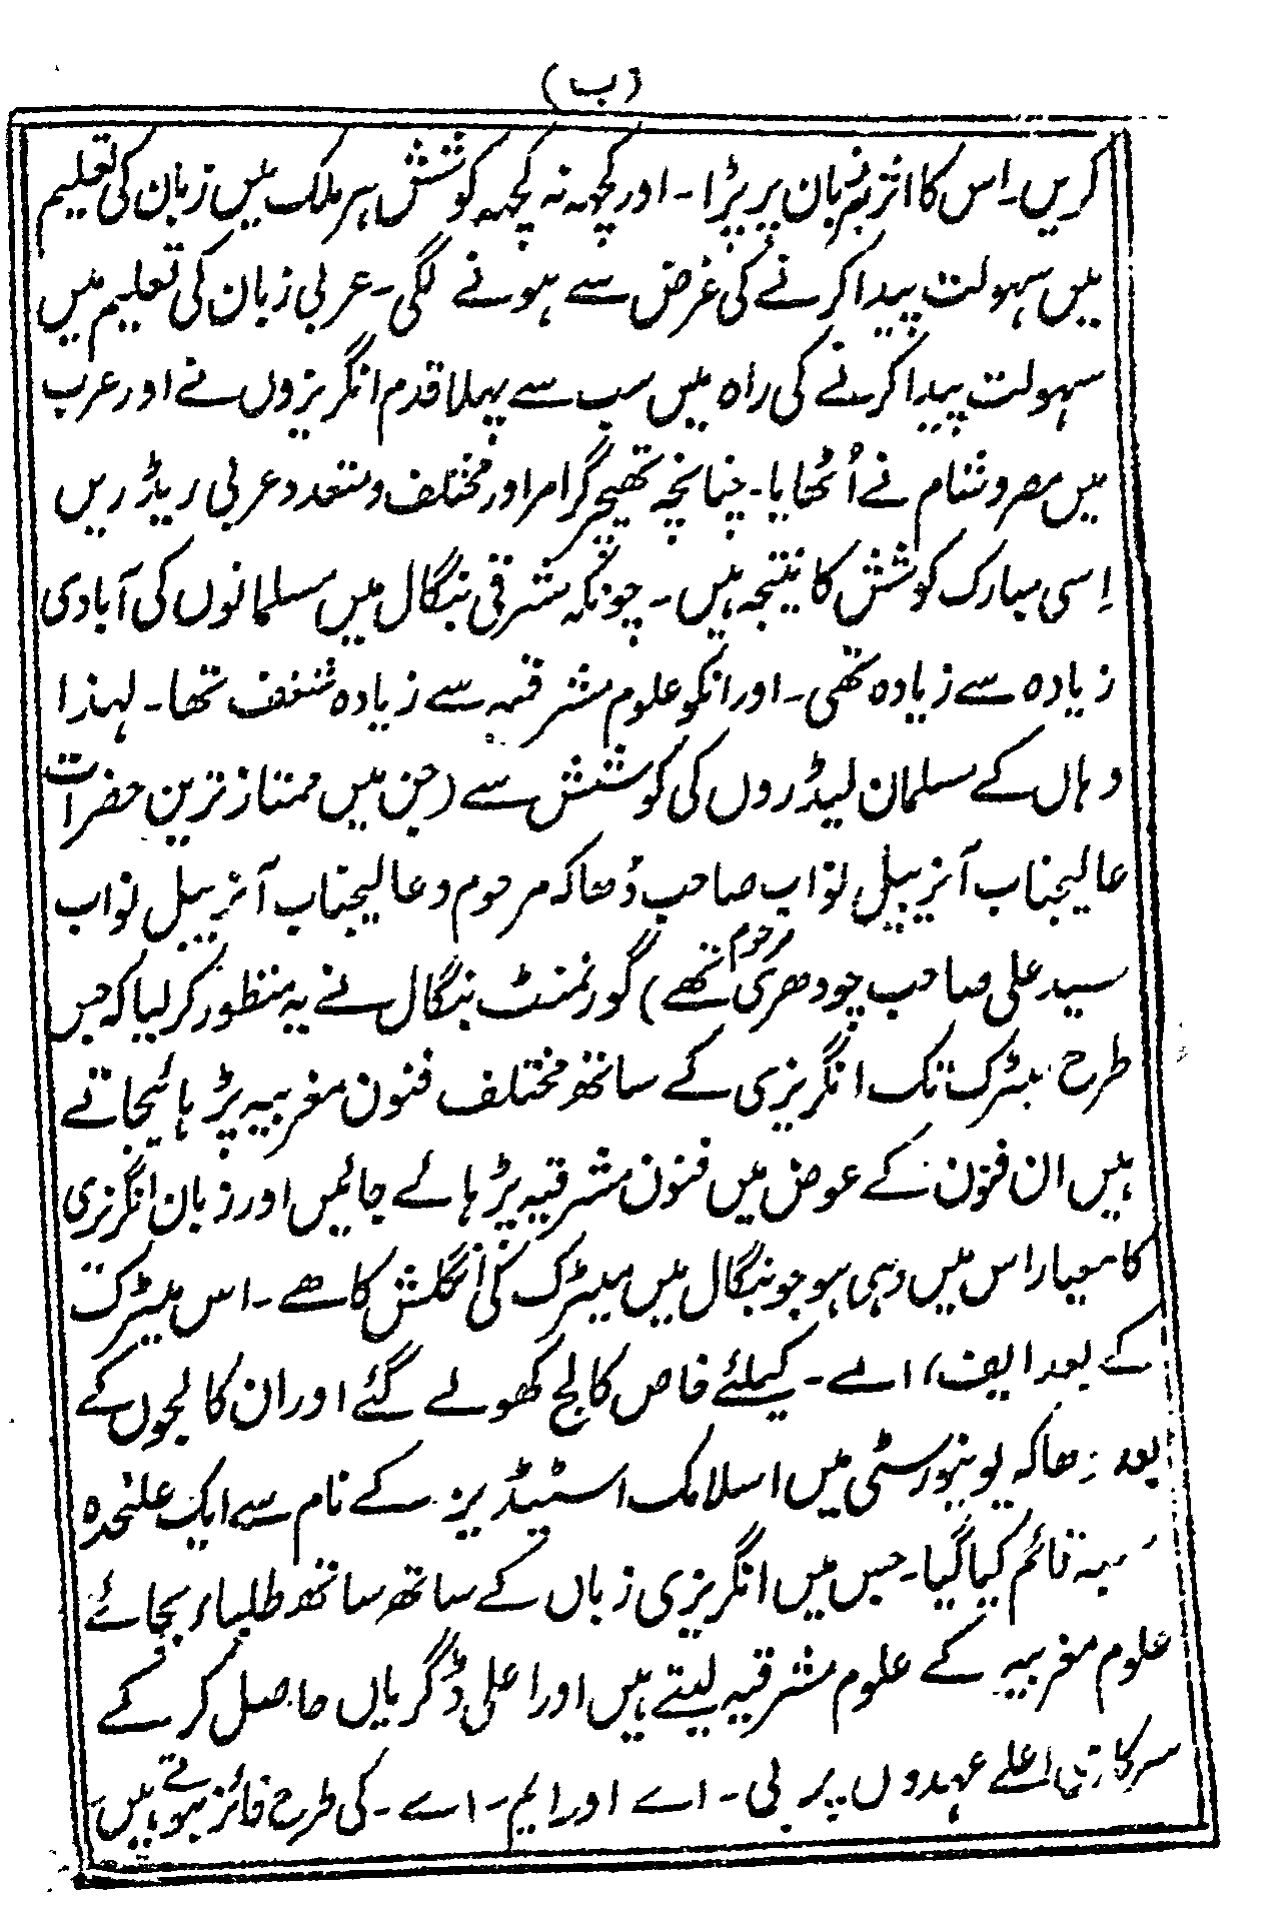 (ب)
کریں۔ اس کا اثر ہر زبان پر پڑا۔ اور کچہہ نہ کچہہ کوشش ہر ملک میں زبان کی تعلیم
میں سہولت پیدا کرنے کی غرض سے ہونے لگی۔ عربی زبان کی تعلیم میں
سہولت پیدا کرنے کی راہ میں سب سے پہلا قدم انگریزوں نے اور عرب
میں مصر و شام نے اُٹھایا۔ چنانچہ تھیچر گرامر اور مختلف و متعدد عربی ریڈریں
اِسی مبارک کوشش کا نتیجہ ہیں۔ چونکہ مشرقی بنگال میں مسلمانوں کی آبادی
زیادہ سے زیادہ تھی۔ اور انکو علوم مشرقیہ سے زیادہ شغف تھا۔ لہذا
وہاں کے مسلمان لیڈروں کی کوشش سے (جن میں ممتاز ترین حضرات
عالیجناب آنریبل نواب صاحب ڈھاکہ مرحوم و عالیجناب آنریبل نواب
سید علی صاحب چودھری مرحوم تھے) گورنمنٹ بنگال نے یہ منظور کر لیا کہ جس
طرح میٹرک تک انگریزی کے ساتھ مختلف فنون مغربیہ پڑہائیجاتے
ہیں ان فنون کے عوض میں فنون مشرقیہ پڑہائے جائیں اور زبان انگریزی
کا معیار اس میں وہی ہو جو بنگال میں میٹرک کی انگلش کا ھے۔ اس میٹرک
کے بعد ایف، اے۔ کیلئے خاص کالج کھولے گئے اور ان کالجوں کے
بعد ڈھاکہ یونیورسٹی میں اسلامک اسٹیڈیز کے نام سے ایک علٰحدہ
قائم کیا گیا۔ جس میں انگریزی زباں کے ساتھ ساتھ طلباء بجائے
علوم مغربیہ کے علوم مشرقیہ لیتے ہیں اور اعلی ڈگریاں حاصل کر کے
سرکاری اعلے عہدوں پر بی۔ اے اور ایم۔ اے۔ کی طرح فائز ہوتے ہیں